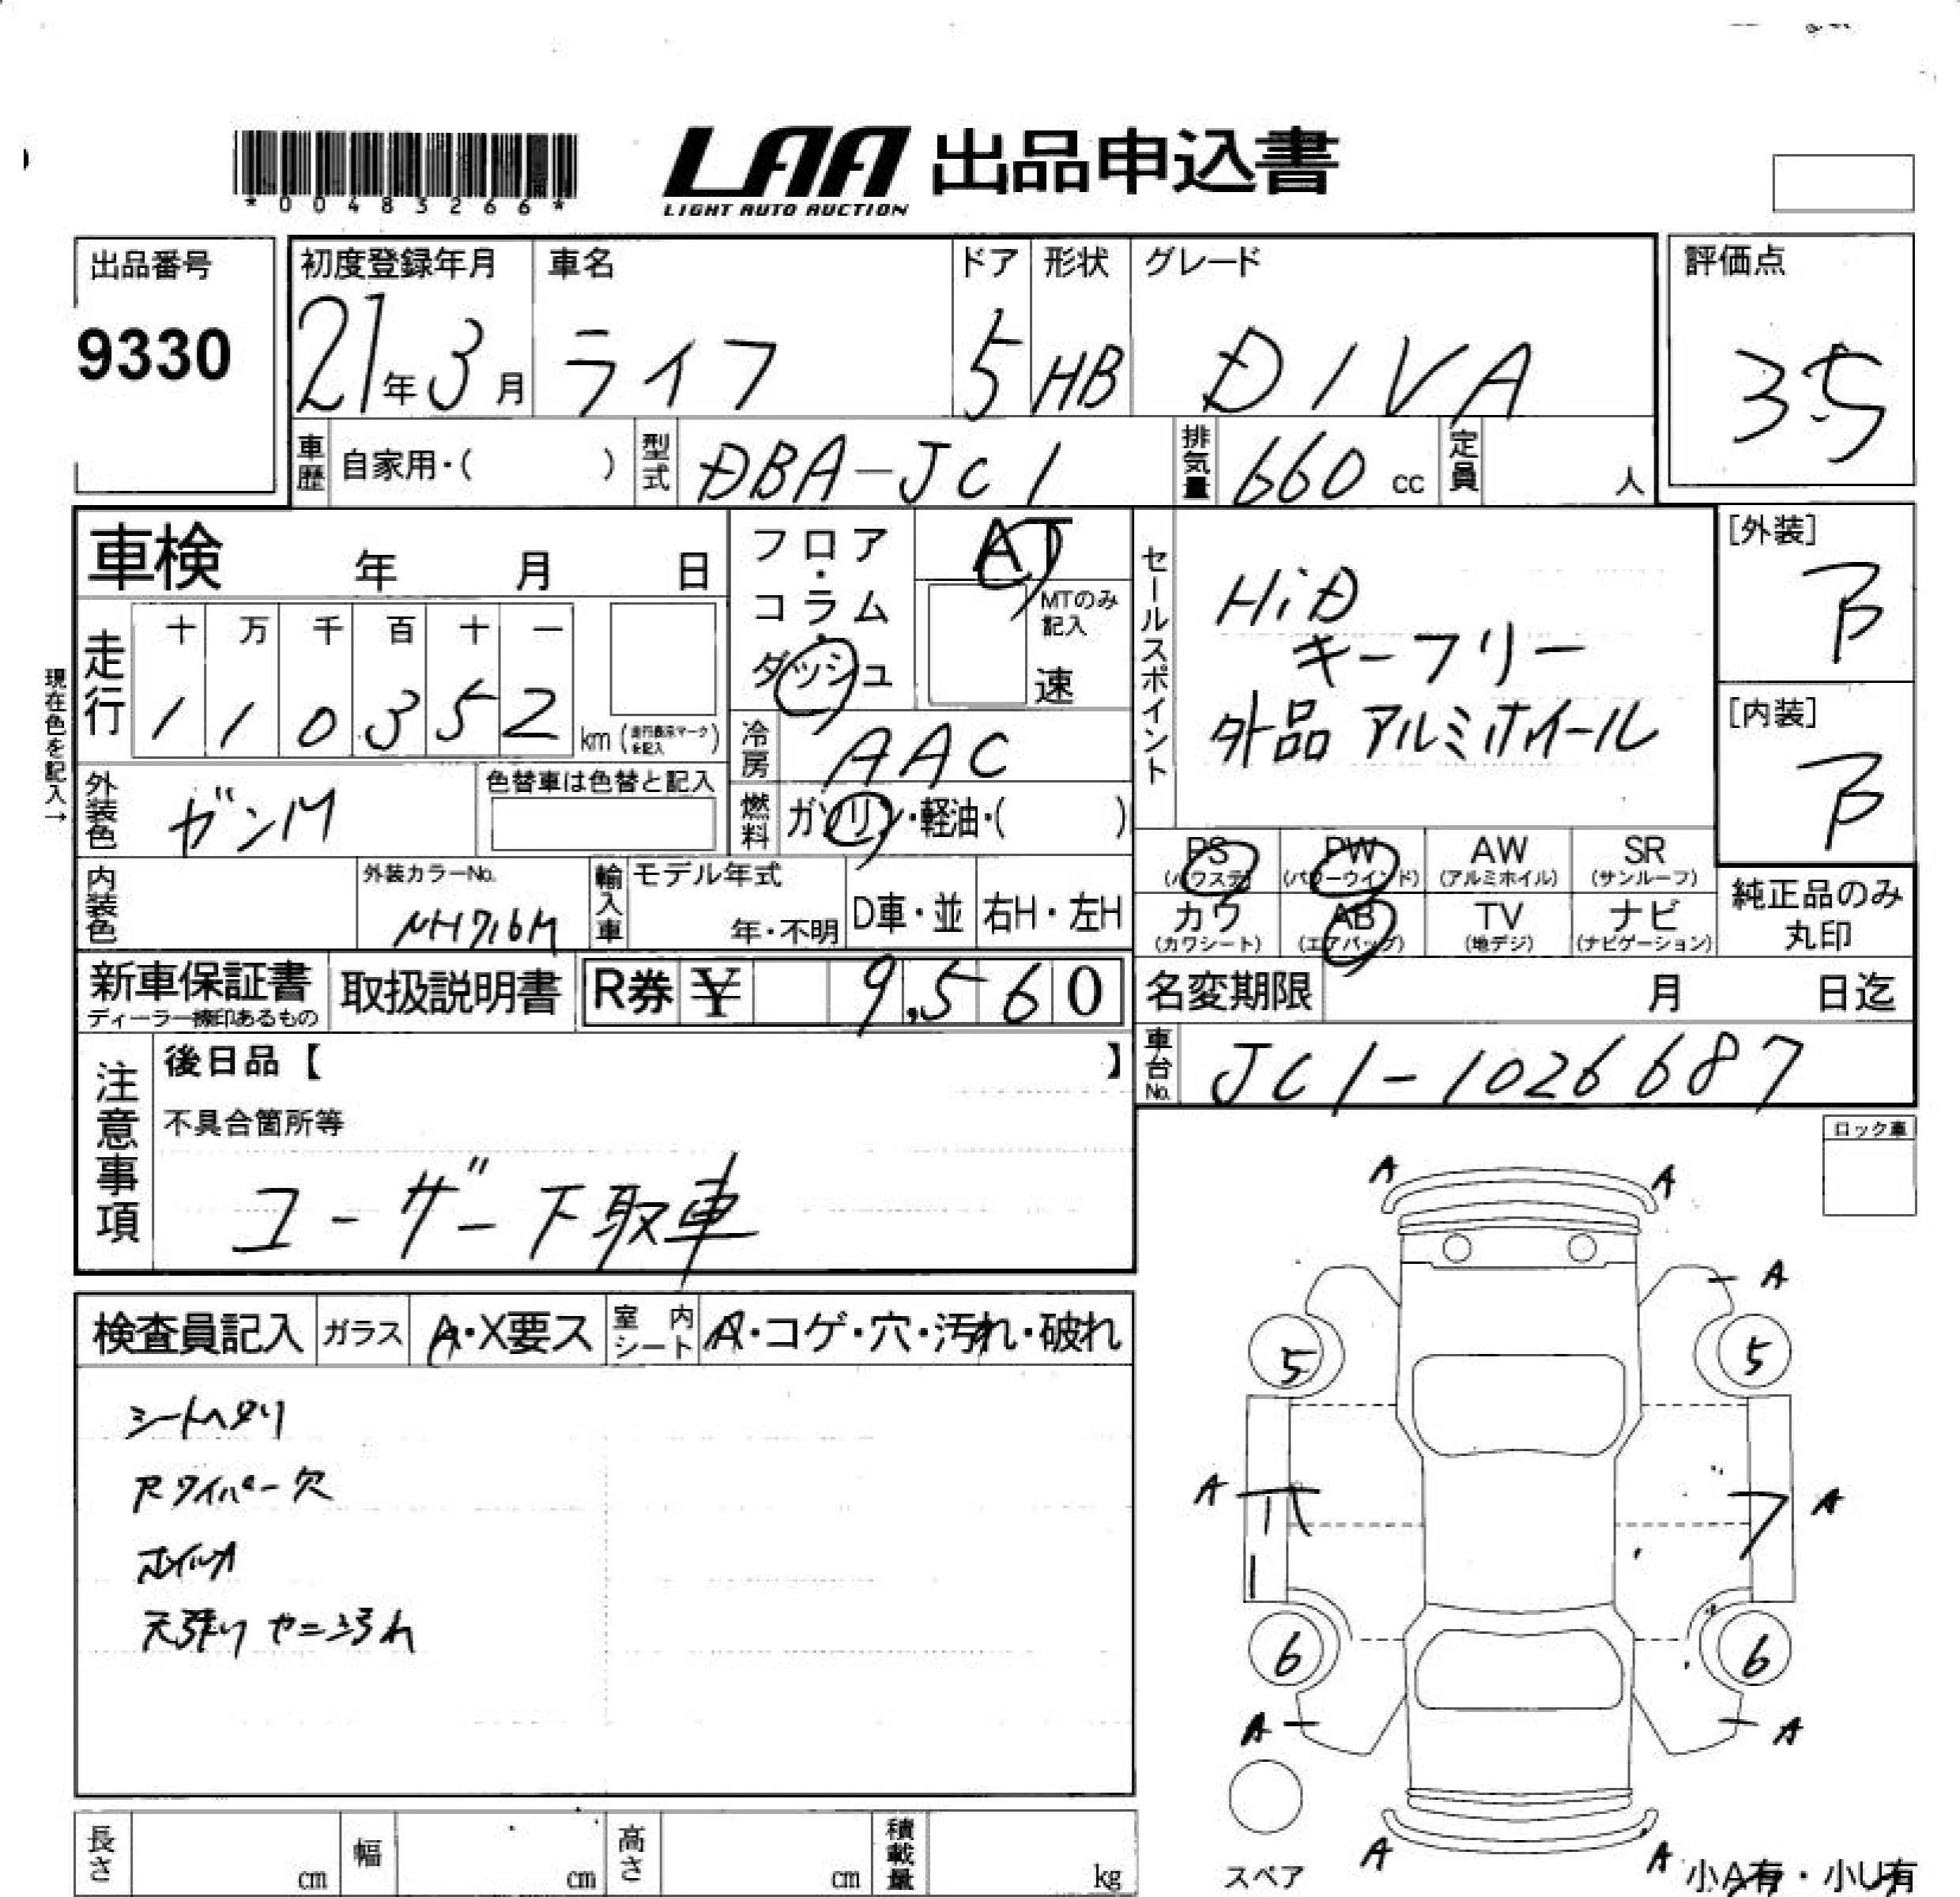 *00483266*
LAA 出品申込書
LIGHT AUTO AUCTION
出品番号
9330
初度登録年月 車名 ドア 形状 グレード
21年3月 ライフ 5 HB DIVA
評価点
3.5
車歴 自家用・( ) 型式 DBA-JC1 排気量 660 cc 定員 人
車検 年 月 日
フロア・コラム・ダッシュ
AT
MTのみ記入
速
セールスポイント
HiD
キーフリー
外品 アルミホイール
[外装]
B
[内装]
B
現在色を記入→
走行 十 万 千 百 十 一
1 1 0 3 5 2 km (走行表示マークを記入)
冷房 AAC
外装色 ガンM
色替車は色替と記入
燃料 ガソリン・軽油・( )
PS (パワステ) PW (パワーウインド) AW (アルミホイル) SR (サンルーフ)
カワ (カワシート) AB (エアバッグ) TV (地デジ) ナビ (ナビゲーション)
純正品のみ丸印
内装色
外装カラーNo.
NH716M
輸入車 モデル年式 年・不明 D車・並 右H・左H
新車保証書
ディーラー捺印あるもの
取扱説明書
R券 ¥ 9,560
名変期限 月 日迄
車台No. JC1-1026687
注意事項
後日品【 】
不具合箇所等
ユーザー下取車
ロック車
検査員記入 ガラス A・X要ス 室内シート A・コゲ・穴・汚れ・破れ
シートヘタリ
Rワイパー欠
ホイルA
天張り ヤニ汚れ
A A
A
5 5
A A
6 6
A A
A A
スペア
小A有・小U有
長さ cm 幅 cm 高さ cm 積載量 kg